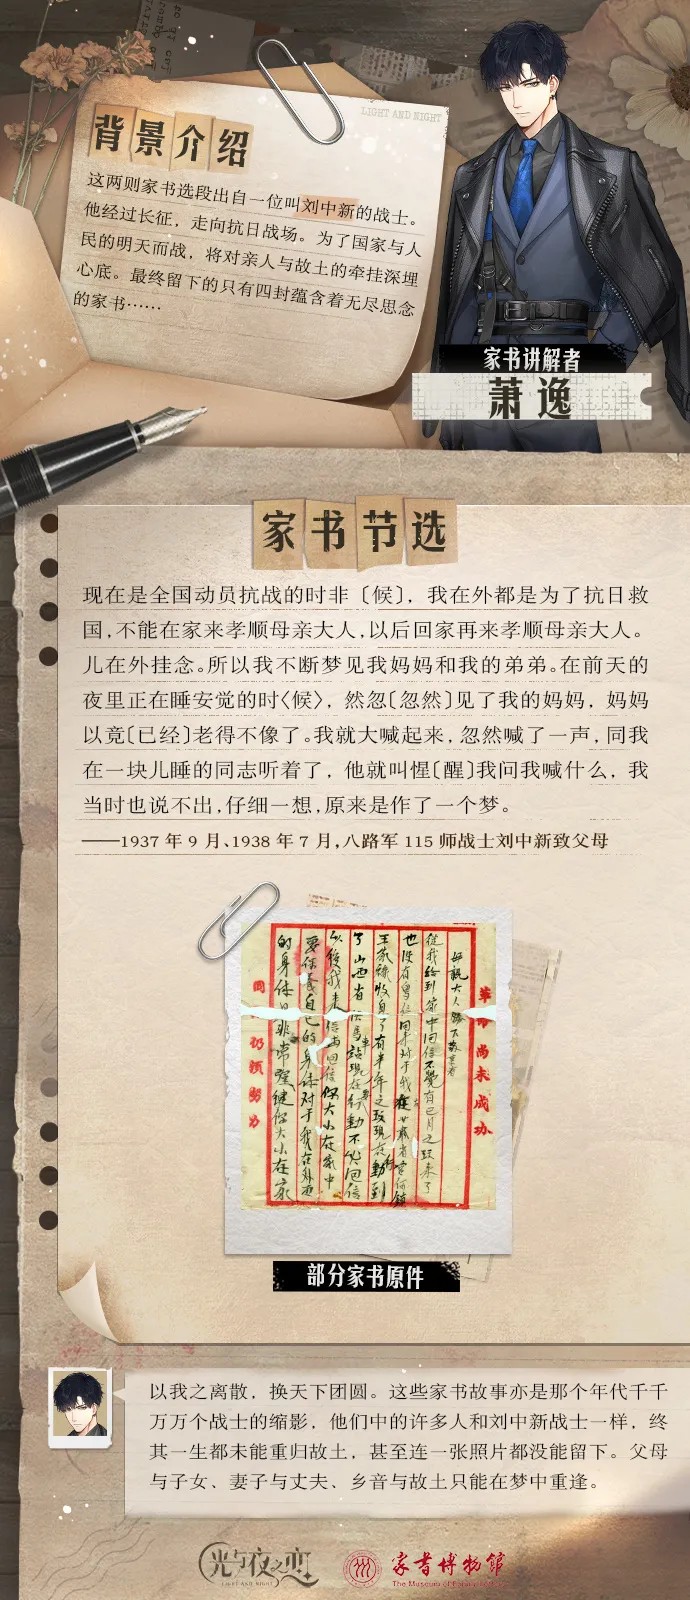 LIGHT AND NIGHT
背景介绍
这两则家书选段出自一位叫刘中新的战士。
他经过长征，走向抗日战场。为了国家与人
民的明天而战，将对亲人与故土的牵挂深埋
心底。最终留下的只有四封蕴含着无尽思念
的家书……
家书讲解者
萧逸
家书节选
现在是全国动员抗战的时非〔候〕，我在外都是为了抗日救
国，不能在家来孝顺母亲大人，以后回家再来孝顺母亲大人。
儿在外挂念。所以我不断梦见我妈妈和我的弟弟。在前天的
夜里正在睡安觉的时〈候〉，然忽〔忽然〕见了我的妈妈，妈妈
以竟〔已经〕老得不像了。我就大喊起来，忽然喊了一声，同我
在一块儿睡的同志听着了，他就叫惺〔醒〕我问我喊什么，我
当时也说不出，仔细一想，原来是作了一个梦。
——1937 年 9 月、1938 年 7 月，八路军 115 师战士刘中新致父母
革命尚未成功
母亲大人
自我给到家中回信不觉有已月之久来了
同
仍须努力
部分家书原件
以我之离散，换天下团圆。这些家书故事亦是那个年代千千
万万个战士的缩影，他们中的许多人和刘中新战士一样，终
其一生都未能重归故土，甚至连一张照片都没能留下。父母
与子女、妻子与丈夫、乡音与故土只能在梦中重逢。
光与夜之恋
LIGHT AND NIGHT
家书博物馆
The Museum of Family Letters